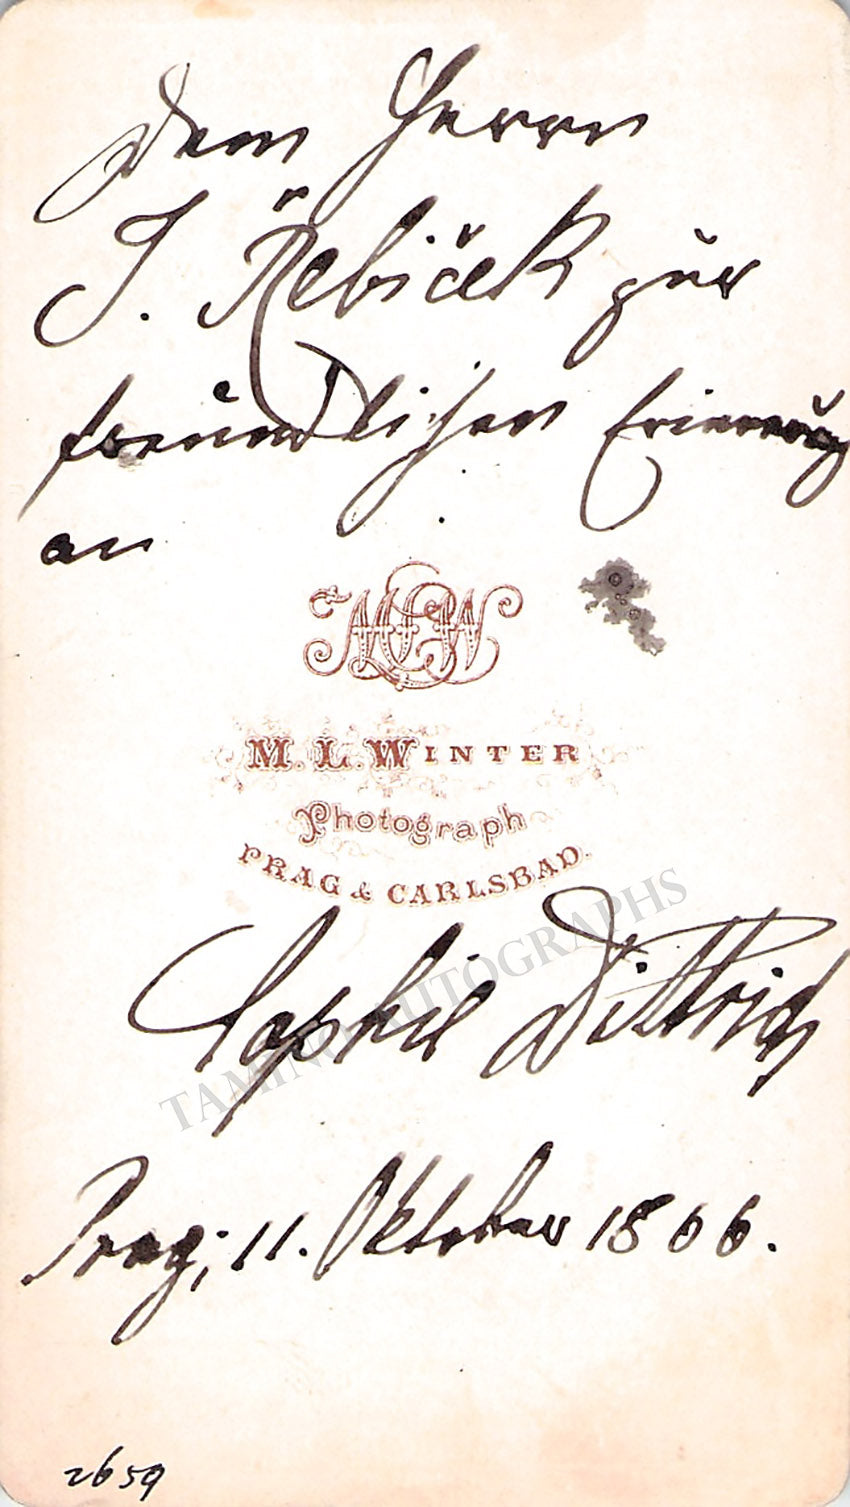 Dem Herrn
J. Řebiček zur
freundlichen Erinnerung
an
MLW
M. L. WINTER
Photograph
PRAG & CARLSBAD.
Sophie Dittrich
TAMINO AUTOGRAPHS
Prag, 11. Oktober 1866.
2659